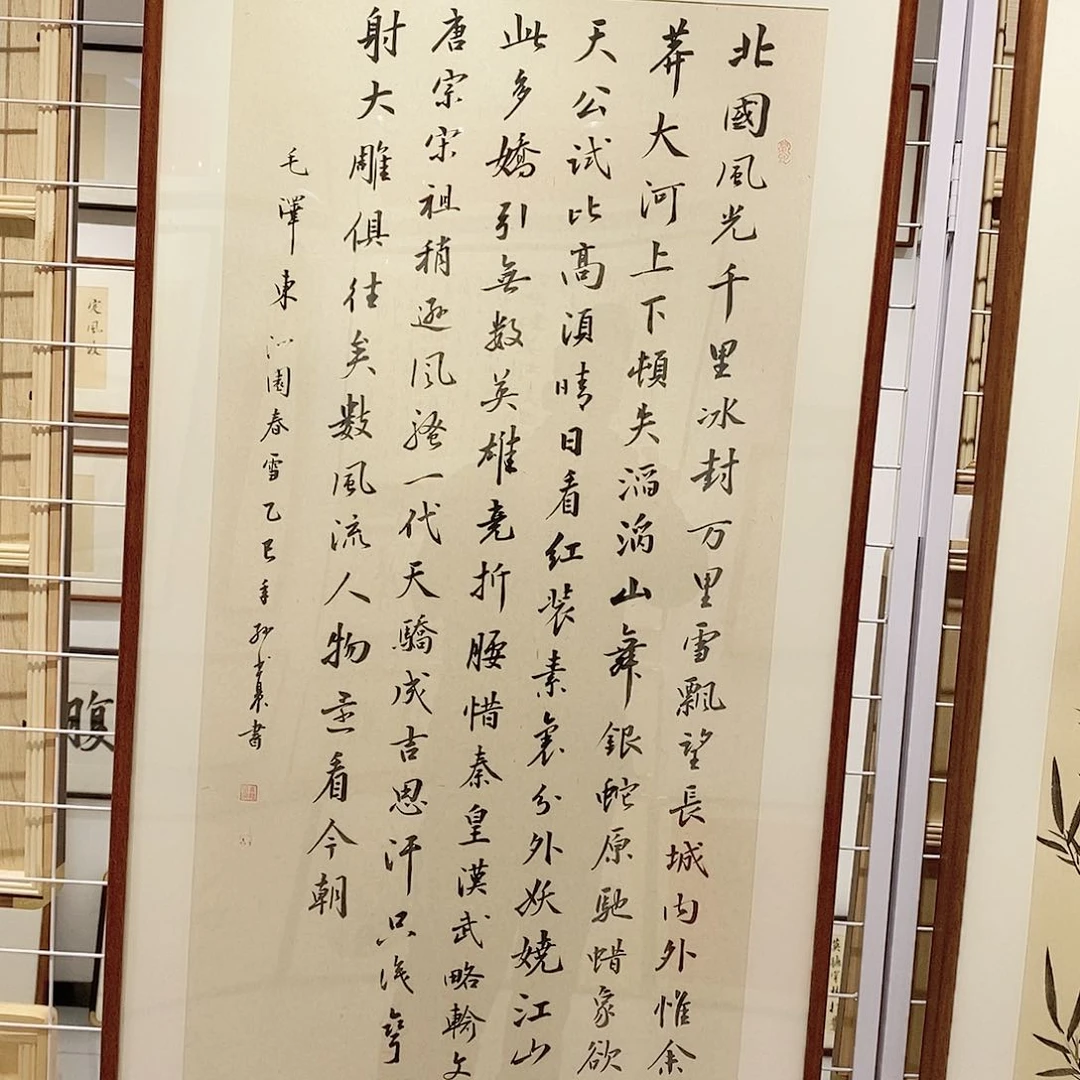 北國風光千里冰封万里雪飄望長城内外惟余
莽大河上下頓失滔滔山舞銀蛇原馳蜡象欲
天公試比高須晴日看红裝素裹分外妖嬈江山
此多嬌引無数英雄竞折腰惜秦皇漢武略輸文
唐宗宋祖稍逊風騷一代天驕成吉思汗只识彎
射大雕俱往矣数風流人物还看今朝
毛澤東沁園春雪乙巳年孙書
腹